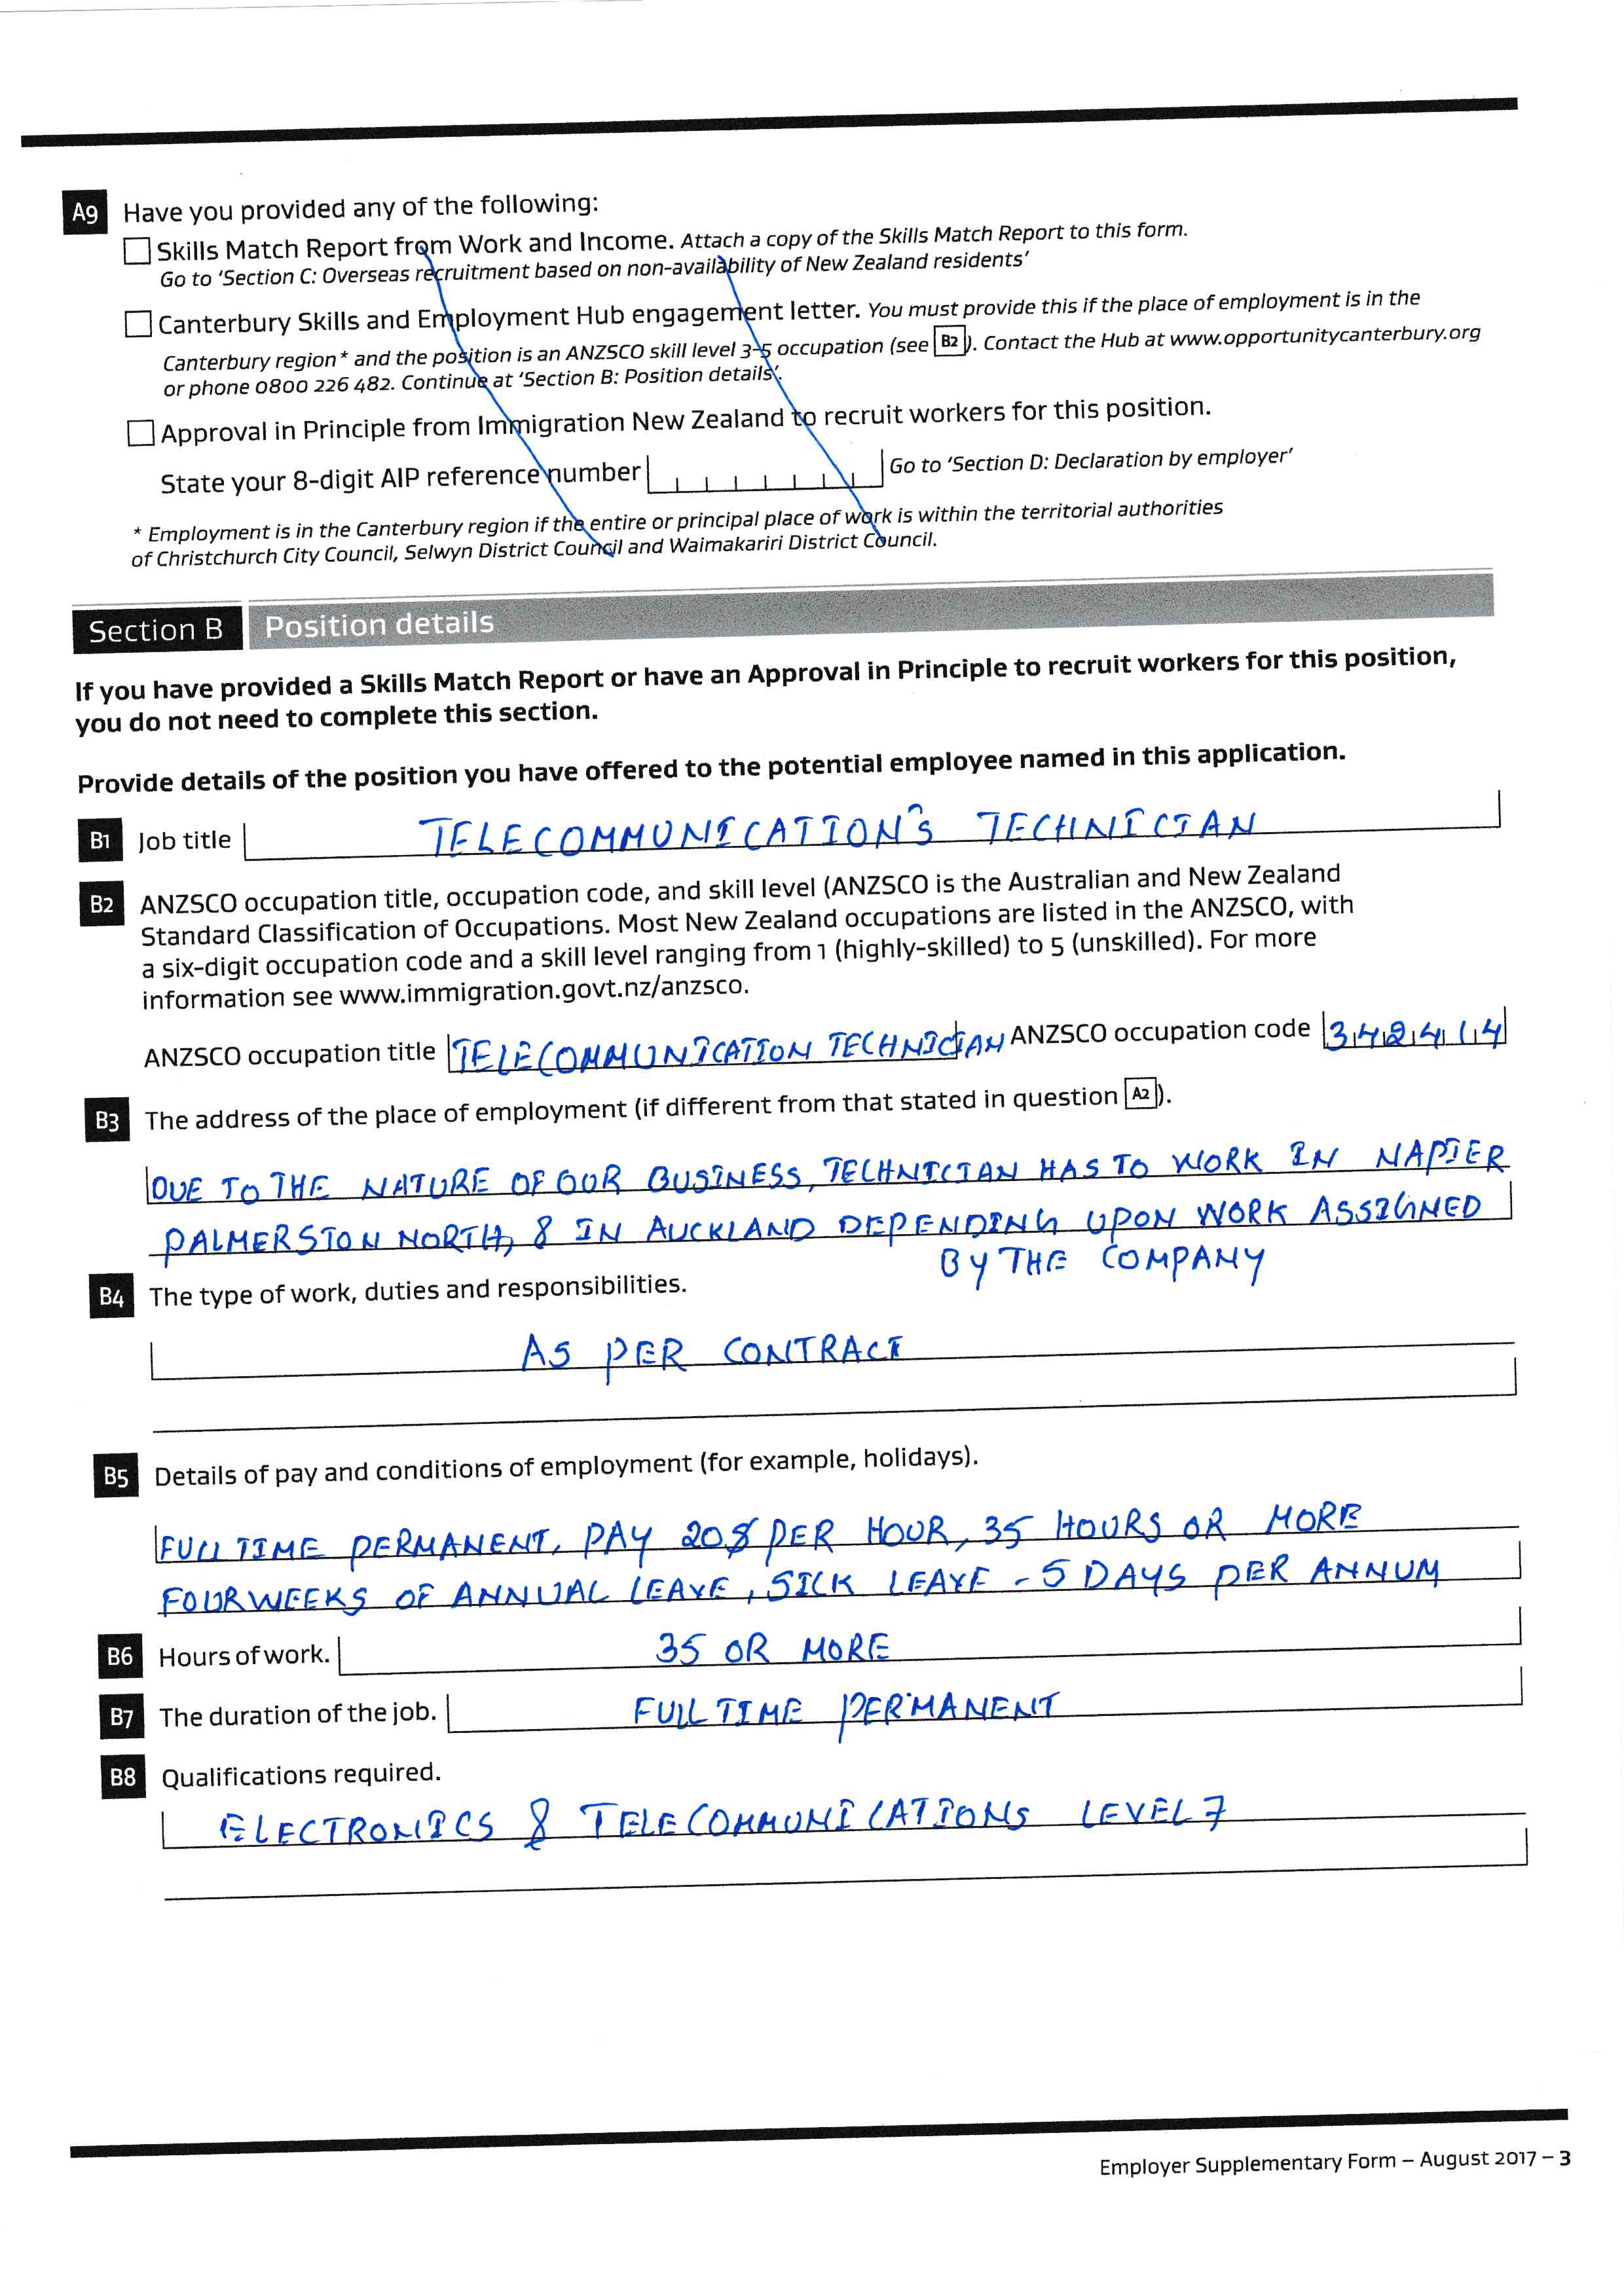 A9 Have you provided any of the following:
Skills Match Report from Work and Income. Attach a copy of the Skills Match Report to this form.
Go to ‘Section C: Overseas recruitment based on non-availability of New Zealand residents’
Canterbury Skills and Employment Hub engagement letter. You must provide this if the place of employment is in the
Canterbury region* and the position is an ANZSCO skill level 3-5 occupation (see B2). Contact the Hub at www.opportunitycanterbury.org
or phone 0800 226 482. Continue at ‘Section B: Position details’.
Approval in Principle from Immigration New Zealand to recruit workers for this position.
State your 8-digit AIP reference number Go to ‘Section D: Declaration by employer’
* Employment is in the Canterbury region if the entire or principal place of work is within the territorial authorities
of Christchurch City Council, Selwyn District Council and Waimakariri District Council.
Section B Position details
If you have provided a Skills Match Report or have an Approval in Principle to recruit workers for this position,
you do not need to complete this section.
Provide details of the position you have offered to the potential employee named in this application.
B1 Job title TELECOMMUNICATION'S TECHNICIAN
B2 ANZSCO occupation title, occupation code, and skill level (ANZSCO is the Australian and New Zealand
Standard Classification of Occupations. Most New Zealand occupations are listed in the ANZSCO, with
a six-digit occupation code and a skill level ranging from 1 (highly-skilled) to 5 (unskilled). For more
information see www.immigration.govt.nz/anzsco.
ANZSCO occupation title TELECOMMUNICATION TECHNICIAN ANZSCO occupation code 342414
B3 The address of the place of employment (if different from that stated in question A2).
DUE TO THE NATURE OF OUR BUSINESS, TECHNICIAN HAS TO WORK IN NAPIER
PALMERSTON NORTH, & IN AUCKLAND DEPENDING UPON WORK ASSIGNED
BY THE COMPANY
B4 The type of work, duties and responsibilities.
AS PER CONTRACT
B5 Details of pay and conditions of employment (for example, holidays).
FULL TIME PERMANENT, PAY 20$ PER HOUR, 35 HOURS OR MORE
FOUR WEEKS OF ANNUAL LEAVE, SICK LEAVE - 5 DAYS PER ANNUM
B6 Hours of work. 35 OR MORE
B7 The duration of the job. FULL TIME PERMANENT
B8 Qualifications required.
ELECTRONICS & TELECOMMUNICATIONS LEVEL 7
Employer Supplementary Form – August 2017 – 3